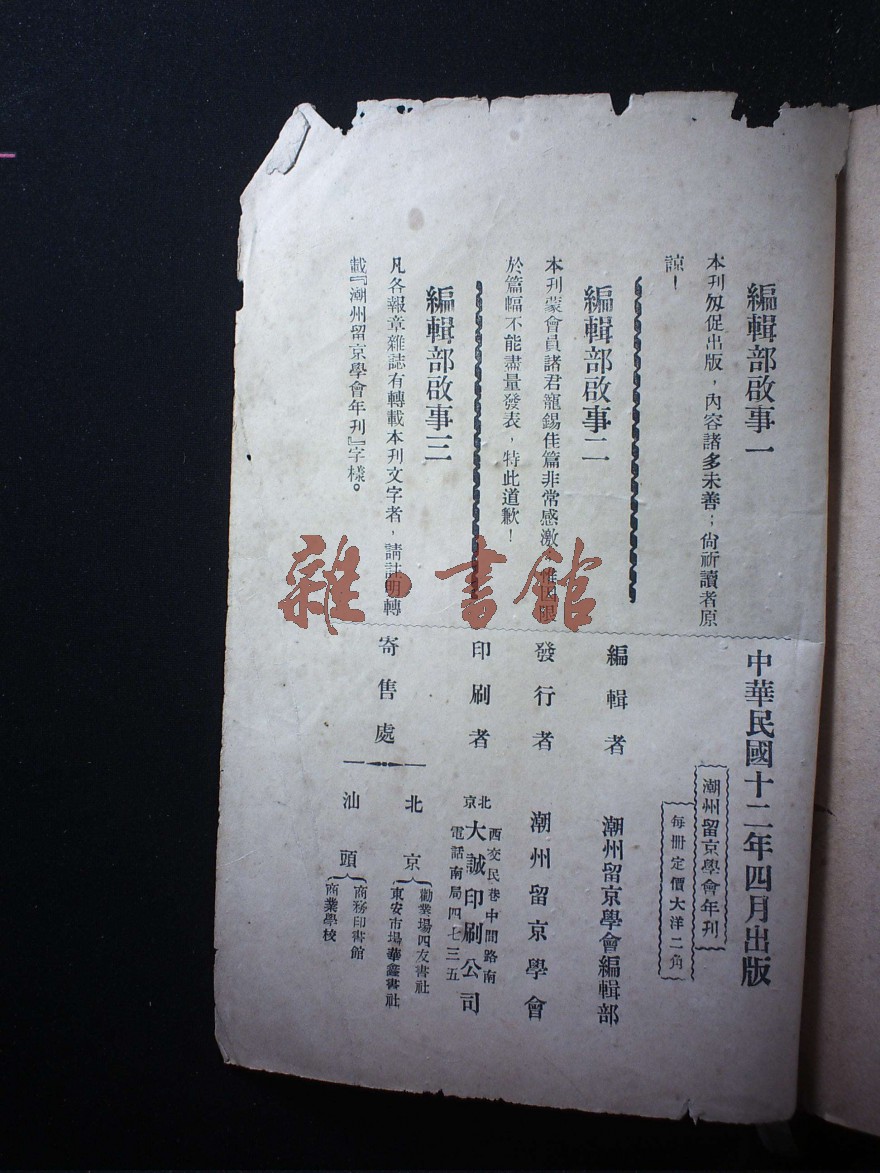 編輯部啟事一
本刊匆促出版，內容諸多未善；尙祈讀者原
諒！
編輯部啟事二
本刊蒙會員諸君寵錫佳篇非常感激，
於篇幅不能盡量發表，特此道歉！
編輯部啟事三
凡各報章雜誌有轉載本刊文字者，請註明轉
載『潮州留京學會年刊』字樣。
雜·書館
中華民國十二年四月出版
潮州留京學會年刊
每冊定價大洋二角
編輯者 潮州留京學會編輯部
發行者 潮州留京學會
印刷者 北京 大誠印刷公司
西交民巷中間路南
電話南局四七三五
寄售處
北京
勸業場四友書社
東安市場華鑫書社
汕頭
商務印書館
商業學校